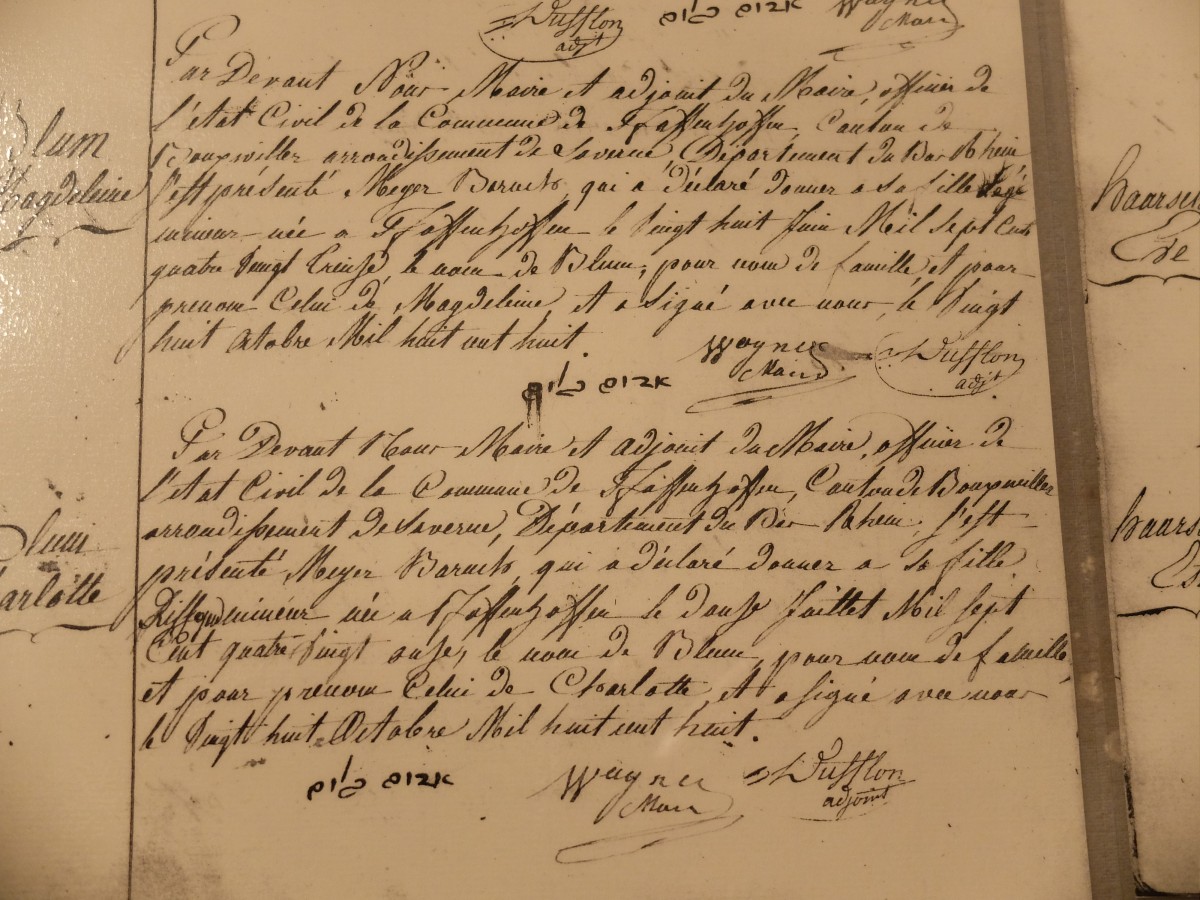 Dufflon
adjt
Wagner
Maire
Par Devant Nous Maire et adjoint du Maire, officier de
l'état Civil de la Commune de Pfaffenhoffen, Canton de
Bouxwiller arrondissement de Saverne, Département du Bas Rhein
s'est présenté Meyer Baruch, qui a déclaré donner a sa fille
mineur née a Pfaffenhoffen le Vingt huit Juin Mil sept Cent
quatre Vingt treise, le nom de Blum, pour nom de famille, et pour
prenom Celui de Magdeleine, et a signé avec nous, le Vingt
huit Octobre Mil huit cent huit.
Wagner
Maire
Dufflon
adjt
Par Devant Nous Maire et adjoint du Maire, officier de
l'état Civil de la Commune de Pfaffenhoffen, Canton de Bouxwiller
arrondissement de Saverne, Département du Bas Rhein, s'est
présenté Meyer Baruch, qui a déclaré donner a sa fille
mineur née a Pfaffenhoffen le douse Juillet Mil sept
Cent quatre Vingt onse, le nom de Blum, pour nom de famille,
et pour prenom Celui de Charlotte, et a signé avec nous
le Vingt huit Octobre Mil huit cent huit.
Wagner
Maire
Dufflon
adjoint
lum
Magdeleine
lum
arlotte